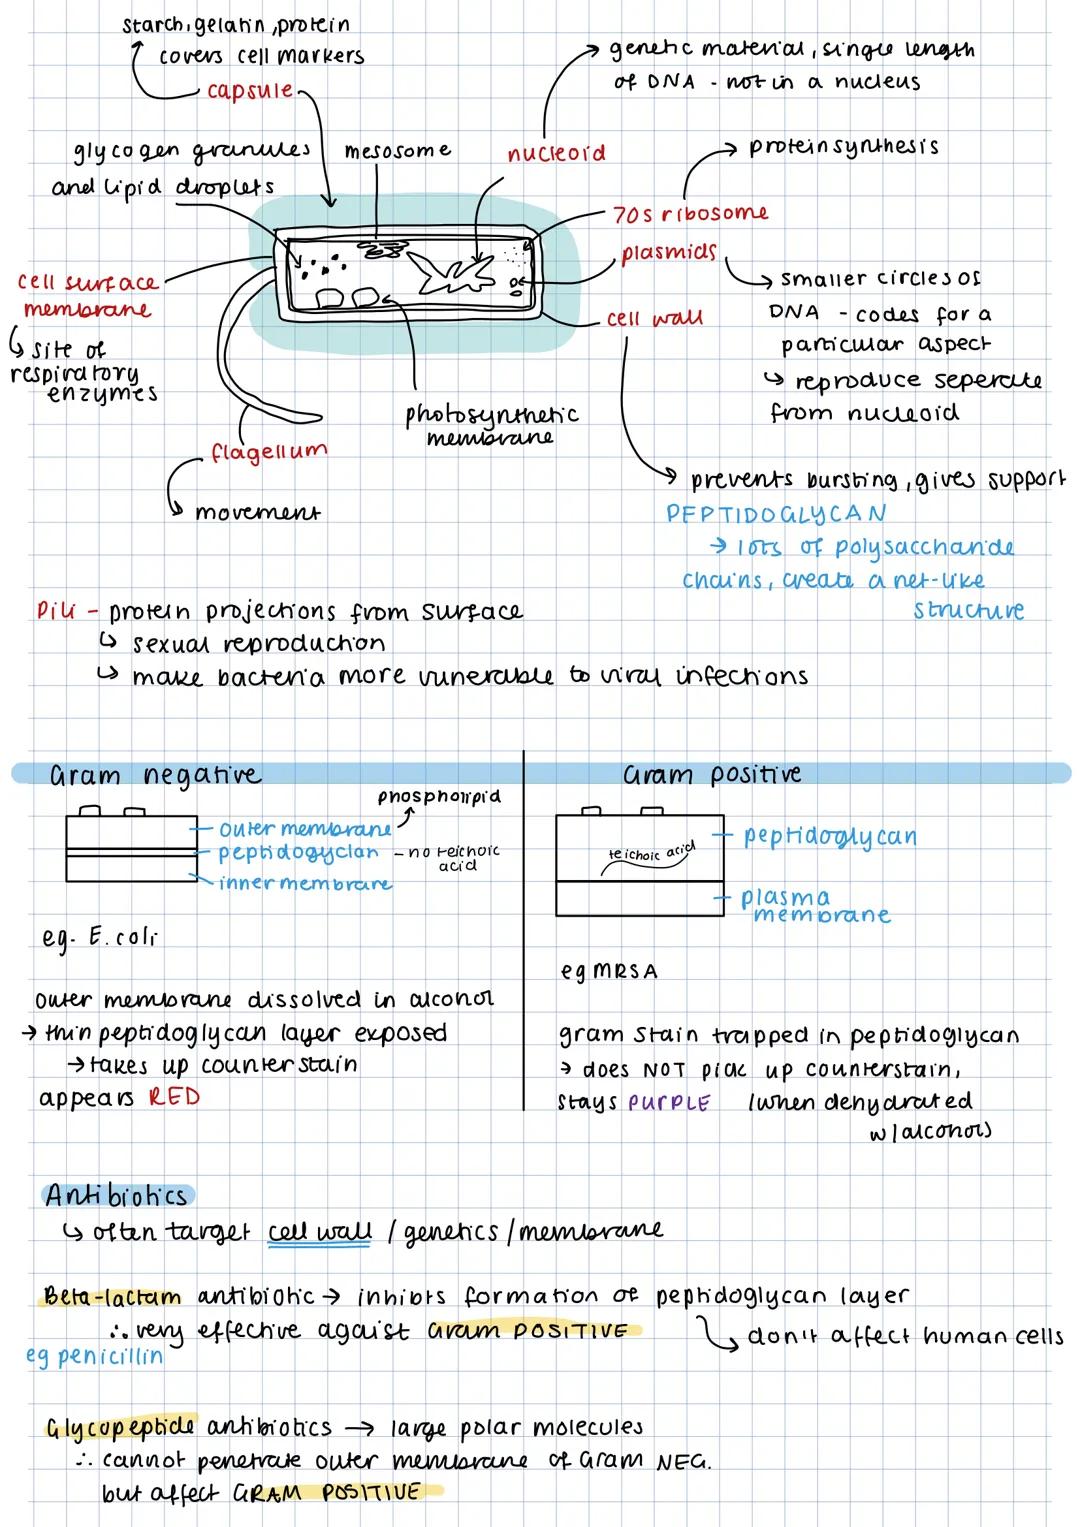 starch, gelatin, protein
covers cell markers
capsule
genetic material, single length
of DNA - not in a nucleus
glycogen granules
and lipid droplets
mesosome
nucleoid
protein synthesis
70s ribosome
plasmids
smaller circles of
DNA - codes for a
particular aspect
↳ reproduce seperate
from nucleoid
cell surface
membrane
↳ site of
respiratory
enzymes
cell wall
photosynthetic
membrane
flagellum
movement
prevents bursting, gives support
PEPTIDOGLYCAN
→ lots of polysaccharide
chains, create a net-like
structure
Pili - protein projections from surface
↳ sexual reproduction
↳ make bacteria more vunerable to viral infections
Gram negative
phospholipid
outer membrane
peptidogyclan - no teichoic
acid
inner membrane
eg. E. coli
outer membrane dissolved in alcohol
→ thin peptidoglycan layer exposed
→ takes up counterstain
appears RED
Gram positive
peptidoglycan
teichoic acid
plasma
membrane
eg MRSA
gram stain trapped in peptidoglycan
→ does NOT pick up counterstain,
stays PURPLE (when dehydrated
w/alcohol)
Antibiotics
↳ often target cell wall / genetics / membrane
Beta-lactam antibiotic → inhibits formation of peptidoglycan layer
∴ very effective agaist Gram POSITIVE
don't affect human cells
eg penicillin
Glycopeptide antibiotics → large polar molecules
∴ cannot penetrate outer membrane of Gram NEG.
but affect GRAM POSITIVE